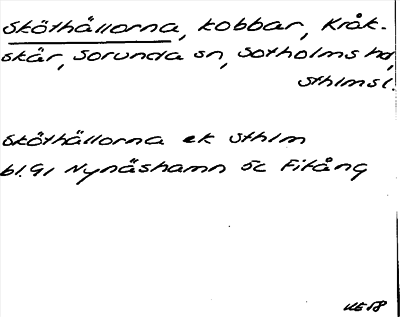 Sköthällorna, kobbar, Kråk-
skär, Sorunda sn, Sotholms hd,
Sthlmsl.
Sköthällorna ek Sthlm
bl. 91 Nynäshamn 5c Fifång
KE 58